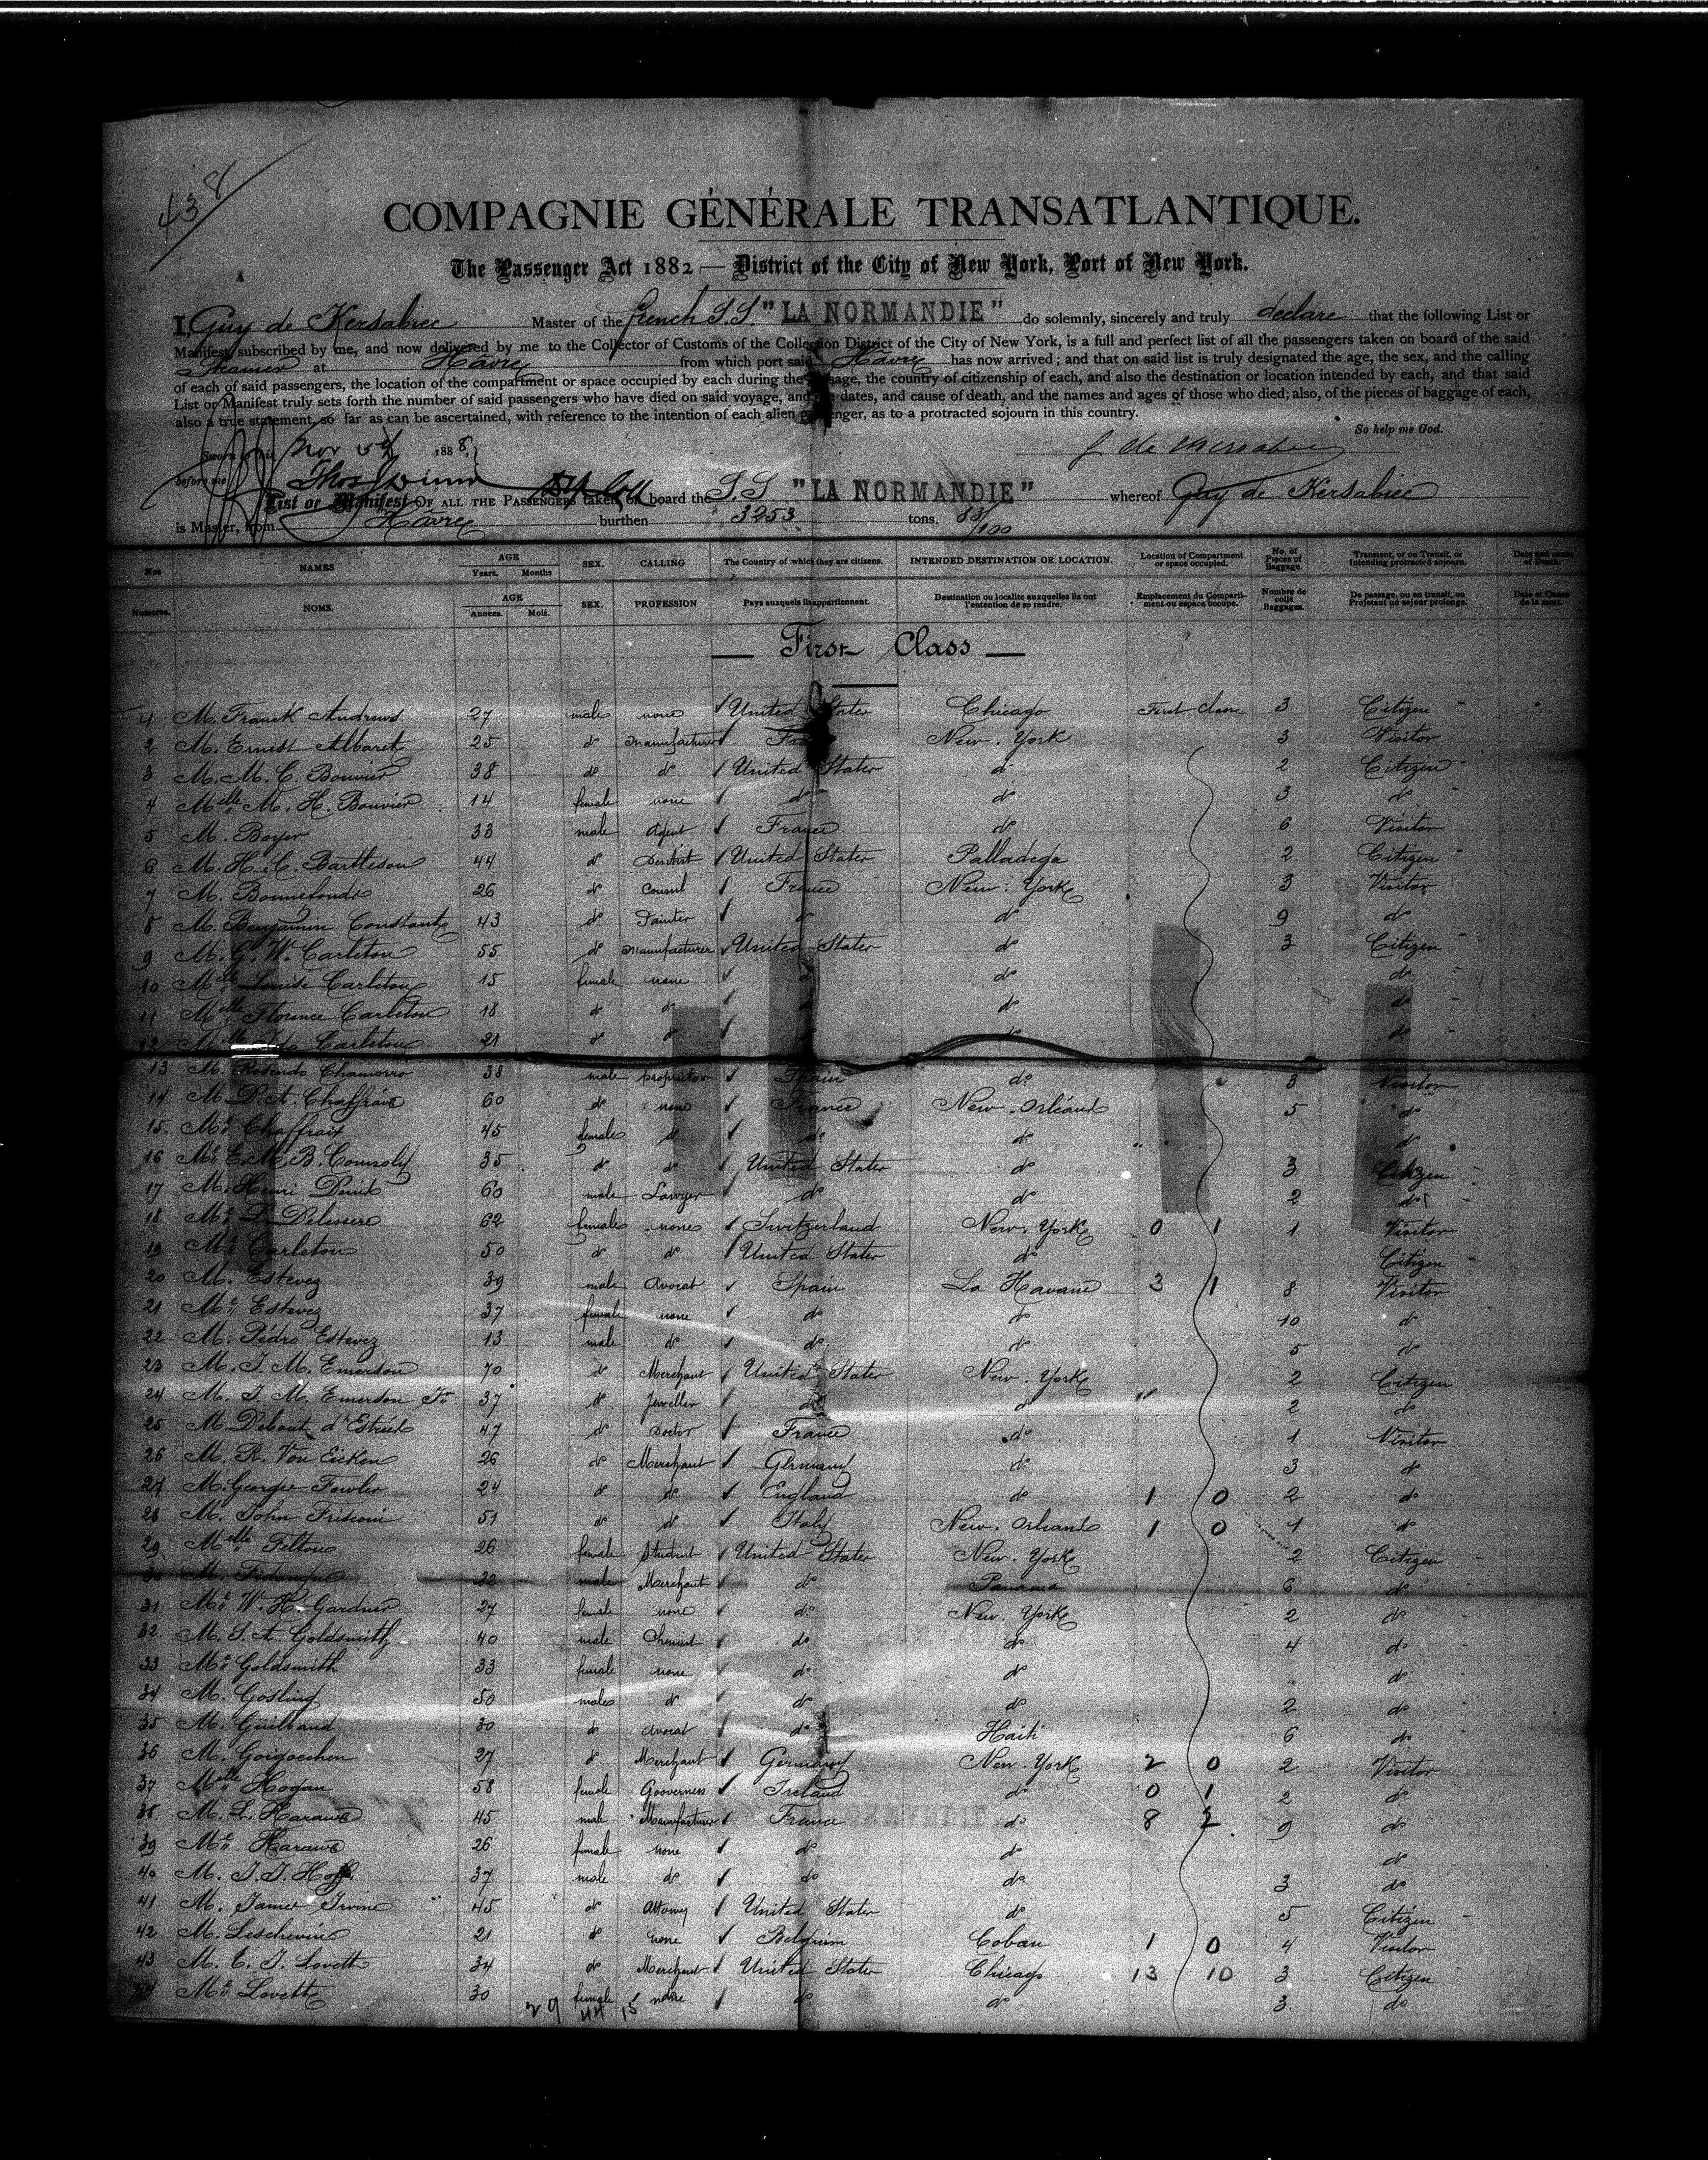 438
COMPAGNIE GÉNÉRALE TRANSATLANTIQUE.
The Passenger Act 1882 — District of the City of New York, Port of New York.
I, Guy de Kersabiec Master of the french S.S. "LA NORMANDIE" do solemnly, sincerely and truly declare that the following List or
Manifest, subscribed by me, and now delivered by me to the Collector of Customs of the Collection District of the City of New York, is a full and perfect list of all the passengers taken on board of the said
Steamer at Hâvre from which port said Hâvre has now arrived; and that on said list is truly designated the age, the sex, and the calling
of each of said passengers, the location of the compartment or space occupied by each during the passage, the country of citizenship of each, and also the destination or location intended by each, and that said
List or Manifest truly sets forth the number of said passengers who have died on said voyage, and the dates, and cause of death, and the names and ages of those who died; also, of the pieces of baggage of each,
also a true statement, so far as can be ascertained, with reference to the intention of each alien passenger, as to a protracted sojourn in this country.
So help me God.
Sworn to this Nov 5th 1888,
before me
List or Manifest OF ALL THE PASSENGERS taken on board the S.S "LA NORMANDIE" whereof Guy de Kersabiec
is Master, from Hâvre burthen 3253 tons. 83/100
Nos NAMES AGE Years. Months SEX. CALLING The Country of which they are citizens. INTENDED DESTINATION OR LOCATION. Location of Compartment or space occupied. No. of Pieces of Baggage. Transient, or on Transit, or Intending protracted sojourn. Date and cause of Death.
Numeros. NOMS. AGE Annees. Mois. SEX. PROFESSION Pays auxquels ils appartiennent. Destination ou localite auxquelles ils ont l'entention de se rendre. Emplacement du Compartiment ou espace occupe. Nombre de colis Baggages. De passage, ou en transit, ou Projetant un sejour prolonge. Date et Cause de la mort.
— First Class —
1 M. Franck Andrews 27 male none United States Chicago First Class 3 Citizen
2 M. Ernest Albaret 25 do manufacturer France New. York 3 Visitor
3 M. M. C. Bouvier 38 do do United States do 2 Citizen
4 Melle M. H. Bouvier 14 female none do do 3 do
5 M. Boyer 33 male Agent France do 6 Visitor
6 M. H. C. Bartleson 44 do Dentist United States Palladega 2 Citizen
7 M. Bonnefonds 26 do Consul France New. York 3 Visitor
8 M. Benjamin Constant 43 do Painter do do 9 do
9 M. G. W. Carleton 55 do manufacturer United States do 3 Citizen
10 Melle Louise Carleton 15 female none do do do
11 Melle Florence Carleton 18 do do do do
12 Melle Carleton 21 do do do do
13 M. Rosendo Chamorro 38 male proprietor Spain do 3 Visitor
14 M. D. A. Chaffraix 60 do none France New. Orléans 5 do
15. Me Chaffraix 45 female do do do do
16 Me E. M. B. 35 do do United States do 3 Citizen
17 M. Henri Denis 60 male Lawyer do do 2 do
18 Me L. Delessere 62 female none Switzerland New. York 0 1 1 Visitor
19 Me Carleton 50 do do United States do Citizen
20 M. Estevez 39 male Avocat Spain La Havane 3 1 8 Visitor
21 Me Estevez 37 female none do do 10 do
22 M. Pédro Estevez 13 male do do do 5 do
23 M. J. M. Emerson 70 do Merchant United States New. York 2 Citizen
24 M. J. M. Emerson Jr 37 do Jeweller do do 2 do
25 M. Debout d'Estrées 47 do Doctor France do 1 Visitor
26 M. R. Von Eicken 26 do Merchant Germany do 3 do
27 M. Georges Fowler 24 do do England do 1 0 2 do
28 M. John Frisconi 51 do do Italy New. Orleans 1 0 1 do
29 Melle Felton 26 female Student United States New. York 2 Citizen
30 M. 22 male Merchant do Panama 6 do
31 Me W. H. Gardner 27 female none do New. York 2 do
32 M. S. A. Goldsmith 40 male Chemist do do 4 do
33 Me Goldsmith 33 female none do do do
34 M. Gosling 50 males do do do 2 do
35 M. Guilbaud 30 do Avocat do Haiti 6 do
36 M. Goigoechen 27 do Merchant Germany New. York 2 0 2 Visitor
37 Melle Hogan 58 female Gooverness Ireland do 0 1 2 do
38 M. L. Harawe 45 male Manufacturer France do 8 2 9 do
39 Me Harawe 26 female none do do do
40 M. J. J. Hoff 37 male do do do 3 do
41 M. James Irvine 45 do Attorney United States do 5 Citizen
42 M. Leschevin 21 do none Belgium Coban 1 0 4 Visitor
43 M. E. J. Lovett 34 do Merchant United States Chicago 13 10 3 Citizen
44 Me Lovett 30 female none do do 3 do
29 44 15